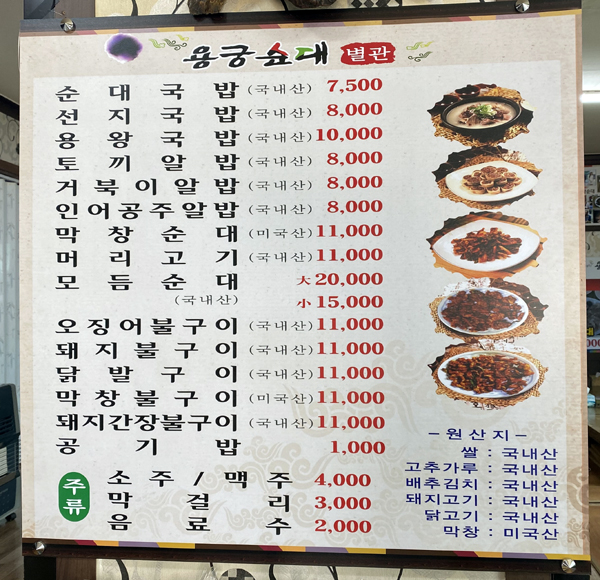 용궁순대 별관
순대국밥 (국내산) 7,500
선지국밥 (국내산) 8,000
용왕국밥 (국내산) 10,000
토끼알밥 (국내산) 8,000
거북이알밥 (국내산) 8,000
인어공주알밥 (국내산) 8,000
막창순대 (미국산) 11,000
머리고기 (국내산) 11,000
모듬순대 大 20,000
(국내산) 小 15,000
오징어불구이 (국내산) 11,000
돼지불구이 (국내산) 11,000
닭발구이 (국내산) 11,000
막창불구이 (미국산) 11,000
돼지간장불구이 (국내산) 11,000
공기밥 1,000
주류
소주/맥주 4,000
막걸리 3,000
음료수 2,000
– 원산지 –
쌀 : 국내산
고추가루 : 국내산
배추김치 : 국내산
돼지고기 : 국내산
닭고기 : 국내산
막창 : 미국산